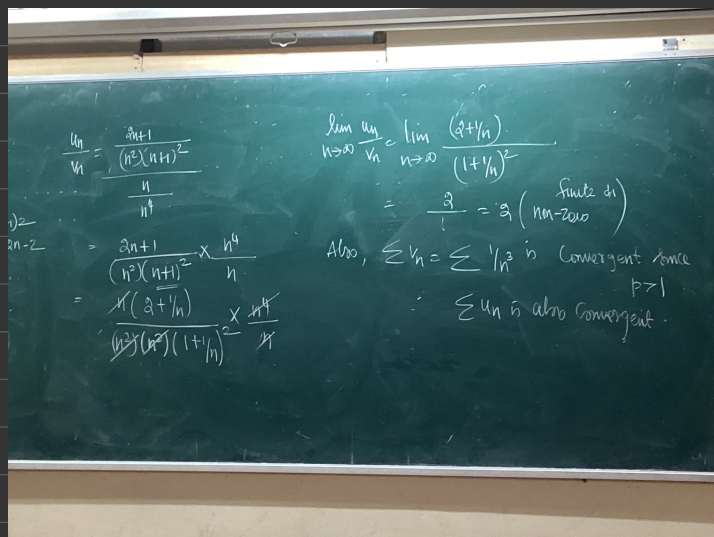 un/vn = (2n+1 / (n²)(n+1)²) / (n / n⁴)
)2
2n-2
= 2n+1 / (n²)(n+1)² × n⁴ / n
= n(2+1/n) / (n²)(n²)(1+1/n)² × n⁴ / n
lim n→∞ un/vn = lim n→∞ (2+1/n) / (1+1/n)²
= 2/1 = 2 (finite & non-zero)
Also, Σvn = Σ 1/n³ is Convergent since
p>1
∴ Σun is also Convergent.